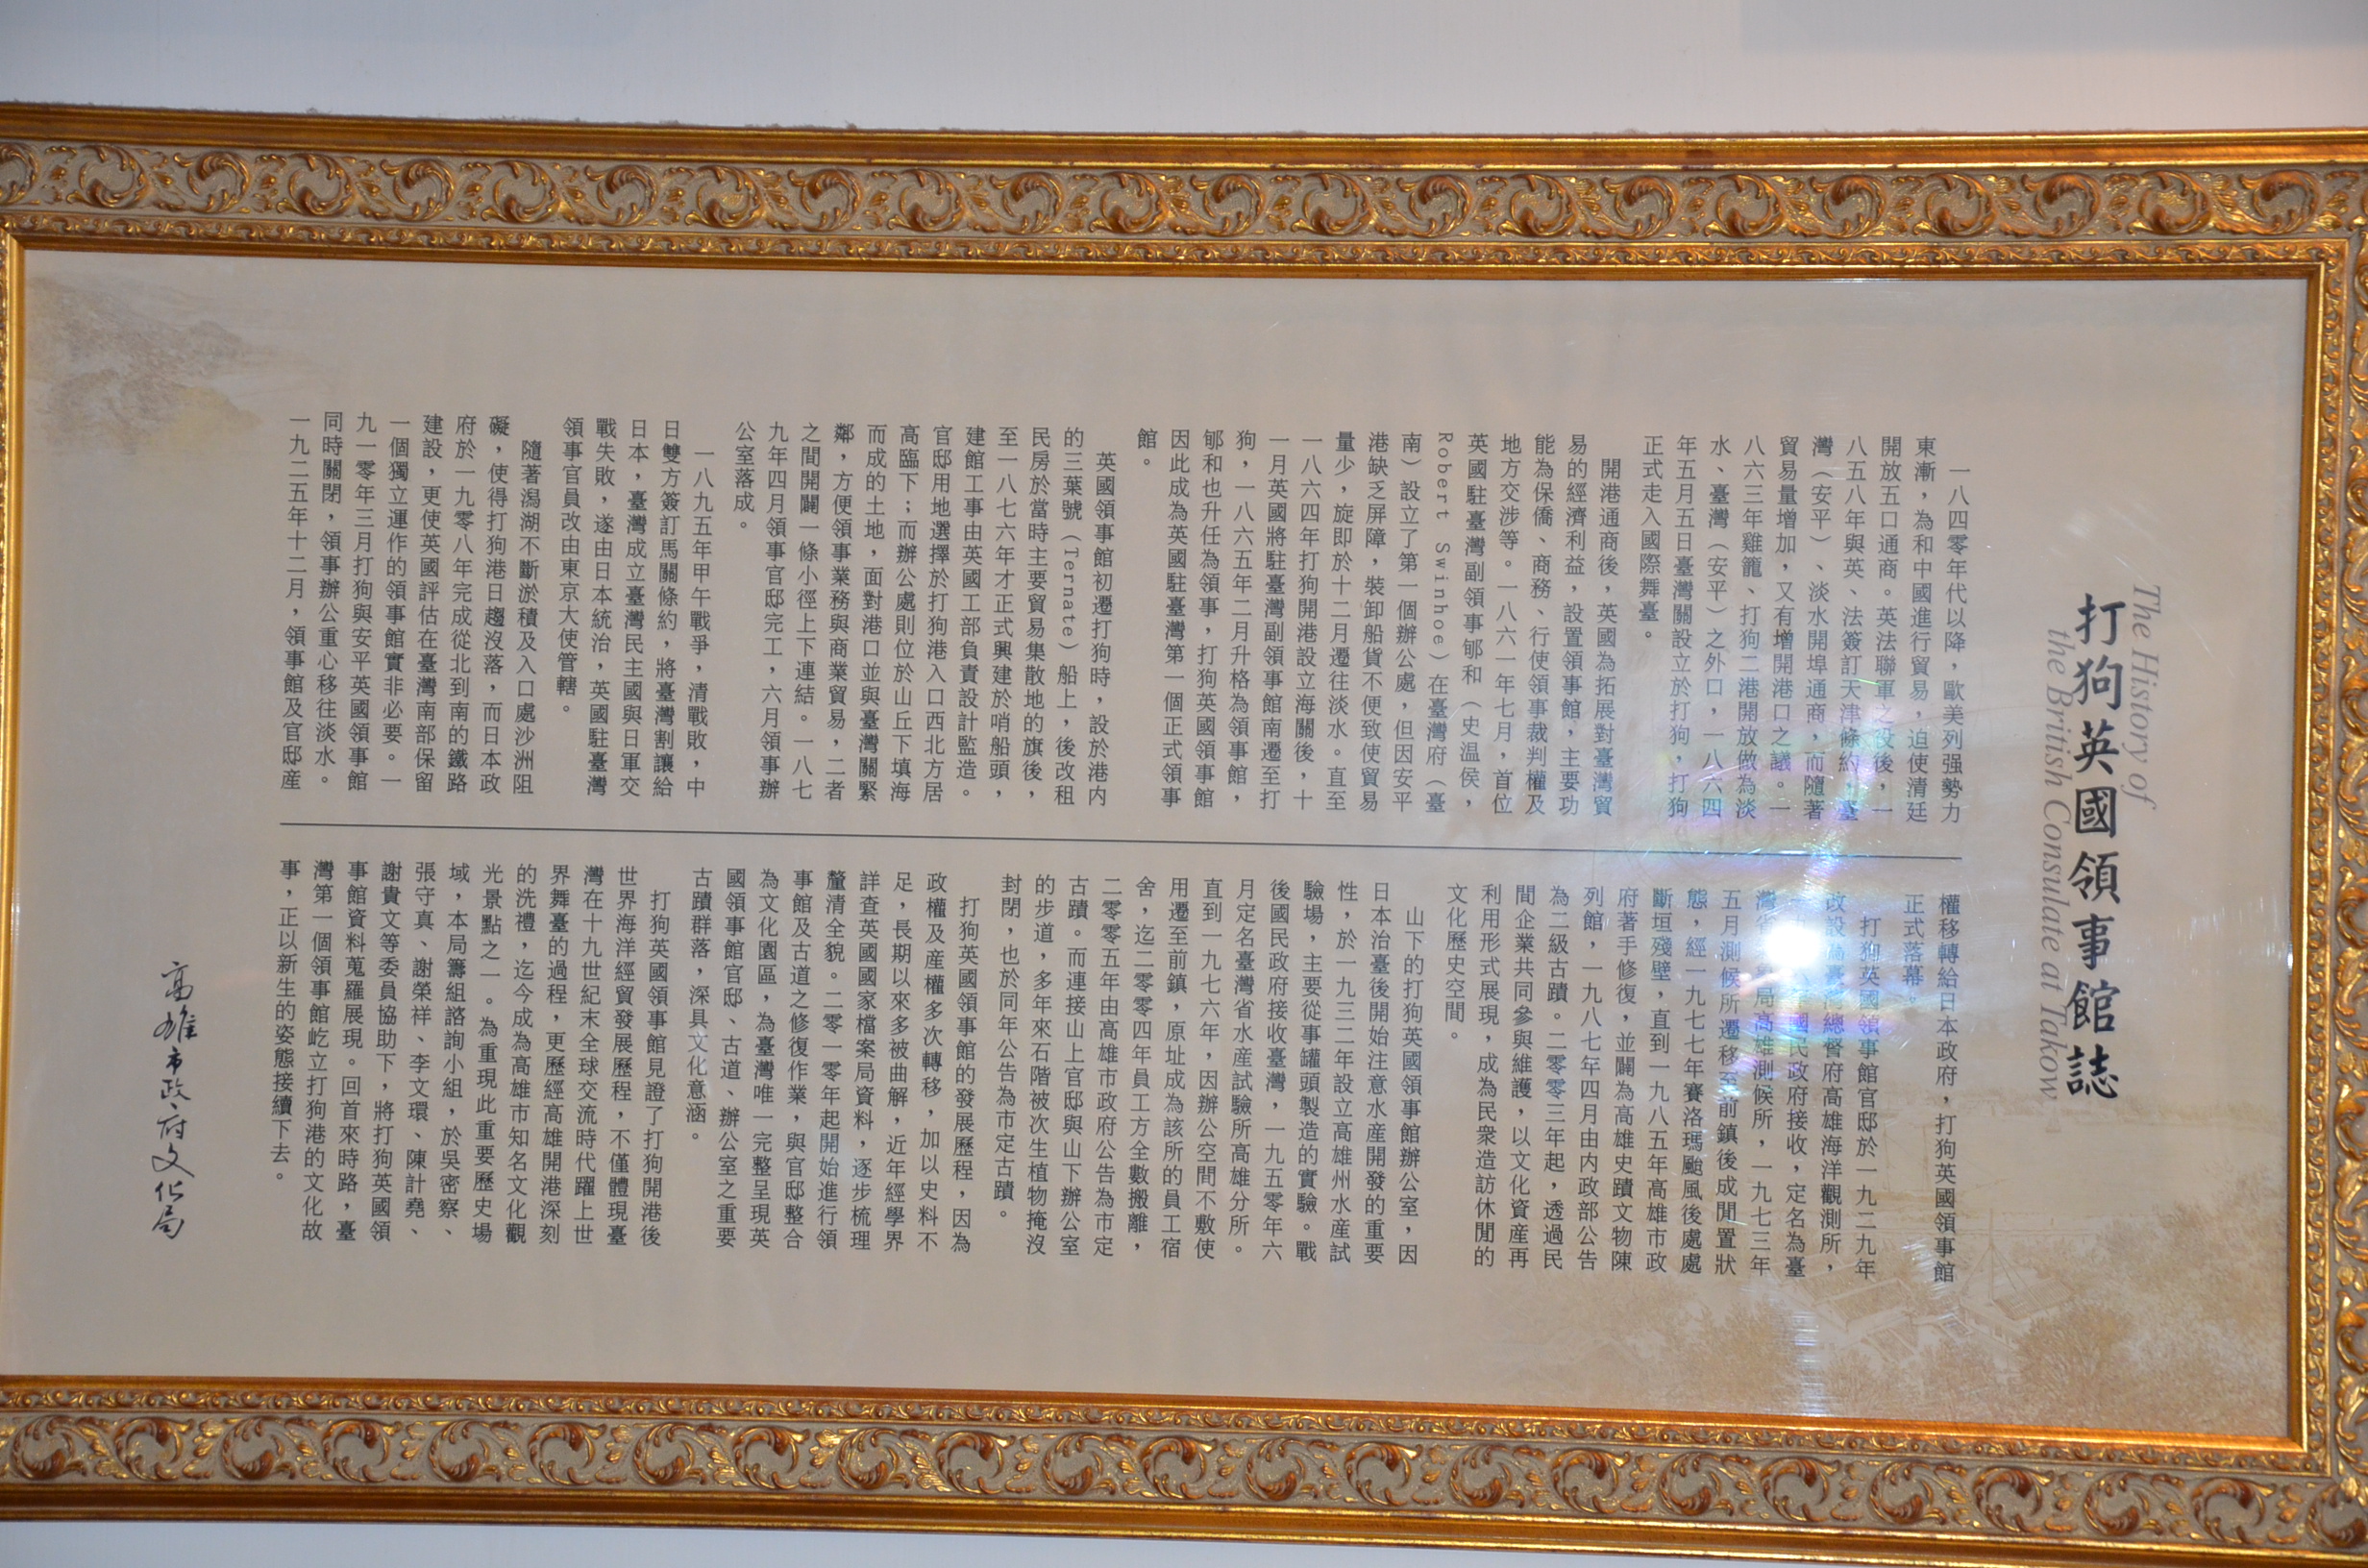 The History of
打狗英國領事館誌
the British Consulate at Takow
一八四零年代以降，歐美列强勢力
東漸，為和中國進行貿易，迫使清廷
開放五口通商。英法聯軍之役後，一
八五八年與英、法簽訂天津條約，臺
灣（安平）、淡水開埠通商，而隨著
貿易量增加，又有增開港口之議。一
八六三年雞籠、打狗二港開放做為淡
水、臺灣（安平）之外口，一八六四
年五月五日臺灣關設立於打狗，打狗
正式走入國際舞臺。
開港通商後，英國為拓展對臺灣貿
易的經濟利益，設置領事館，主要功
能為保僑、商務、行使領事裁判權及
地方交涉等。一八六一年七月，首位
英國駐臺灣副領事郇和（史温侯，
Robert Swinhoe）在臺灣府（臺
南）設立了第一個辦公處，但因安平
港缺乏屏障，裝卸船貨不便致使貿易
量少，旋即於十二月遷往淡水。直至
一八六四年打狗開港設立海關後，十
一月英國將駐臺灣副領事館南遷至打
狗，一八六五年二月升格為領事館，
郇和也升任為領事，打狗英國領事館
因此成為英國駐臺灣第一個正式領事
館。
英國領事館初遷打狗時，設於港内
的三葉號（Ternate）船上，後改租
民房於當時主要貿易集散地的旗後，
至一八七六年才正式興建於哨船頭，
建館工事由英國工部負責設計監造。
官邸用地選擇於打狗港入口西北方居
高臨下；而辦公處則位於山丘下填海
而成的土地，面對港口並與臺灣關緊
鄰，方便領事業務與商業貿易，二者
之間開闢一條小徑上下連結。一八七
九年四月領事官邸完工，六月領事辦
公室落成。
一八九五年甲午戰爭，清戰敗，中
日雙方簽訂馬關條約，將臺灣割讓給
日本，臺灣成立臺灣民主國與日軍交
戰失敗，遂由日本統治，英國駐臺灣
領事官員改由東京大使管轄。
隨著潟湖不斷淤積及入口處沙洲阻
礙，使得打狗港日趨沒落，而日本政
府於一九零八年完成從北到南的鐵路
建設，更使英國評估在臺灣南部保留
一個獨立運作的領事館實非必要。一
九一零年三月打狗與安平英國領事館
同時關閉，領事辦公重心移往淡水。
一九二五年十二月，領事館及官邸產
權移轉給日本政府，打狗英國領事館
正式落幕。
打狗英國領事館官邸於一九二九年
改設為臺灣總督府高雄海洋觀測所，
國民政府接收，定名為臺
灣省 局高雄測候所，一九七三年
五月測候所遷移至前鎮後成閒置狀
態，經一九七七年賽洛瑪颱風後處處
斷垣殘壁，直到一九八五年高雄市政
府著手修復，並闢為高雄史蹟文物陳
列館，一九八七年四月由内政部公告
為二級古蹟。二零零三年起，透過民
間企業共同參與維護，以文化資産再
利用形式展現，成為民衆造訪休閒的
文化歷史空間。
山下的打狗英國領事館辦公室，因
日本治臺後開始注意水産開發的重要
性，於一九三二年設立高雄州水産試
驗場，主要從事罐頭製造的實驗。戰
後國民政府接收臺灣，一九五零年六
月定名臺灣省水産試驗所高雄分所。
直到一九七六年，因辦公空間不敷使
用遷至前鎮，原址成為該所的員工宿
舍，迄二零零四年員工方全數搬離，
二零零五年由高雄市政府公告為市定
古蹟。而連接山上官邸與山下辦公室
的步道，多年來石階被次生植物掩沒
封閉，也於同年公告為市定古蹟。
打狗英國領事館的發展歷程，因為
政權及産權多次轉移，加以史料不
足，長期以來多被曲解，近年經學界
詳查英國國家檔案局資料，逐步梳理
釐清全貌。二零一零年起開始進行領
事館及古道之修復作業，與官邸整合
為文化園區，為臺灣唯一完整呈現英
國領事館官邸、古道、辦公室之重要
古蹟群落，深具文化意涵。
打狗英國領事館見證了打狗開港後
世界海洋經貿發展歷程，不僅體現臺
灣在十九世紀末全球交流時代躍上世
界舞臺的過程，更歷經高雄開港深刻
的洗禮，迄今成為高雄市知名文化觀
光景點之一。為重現此重要歷史場
域，本局籌組諮詢小組，於吳密察、
張守真、謝榮祥、李文環、陳計堯、
謝貴文等委員協助下，將打狗英國領
事館資料蒐羅展現。回首來時路，臺
灣第一個領事館屹立打狗港的文化故
事，正以新生的姿態接續下去。
高雄市政府文化局